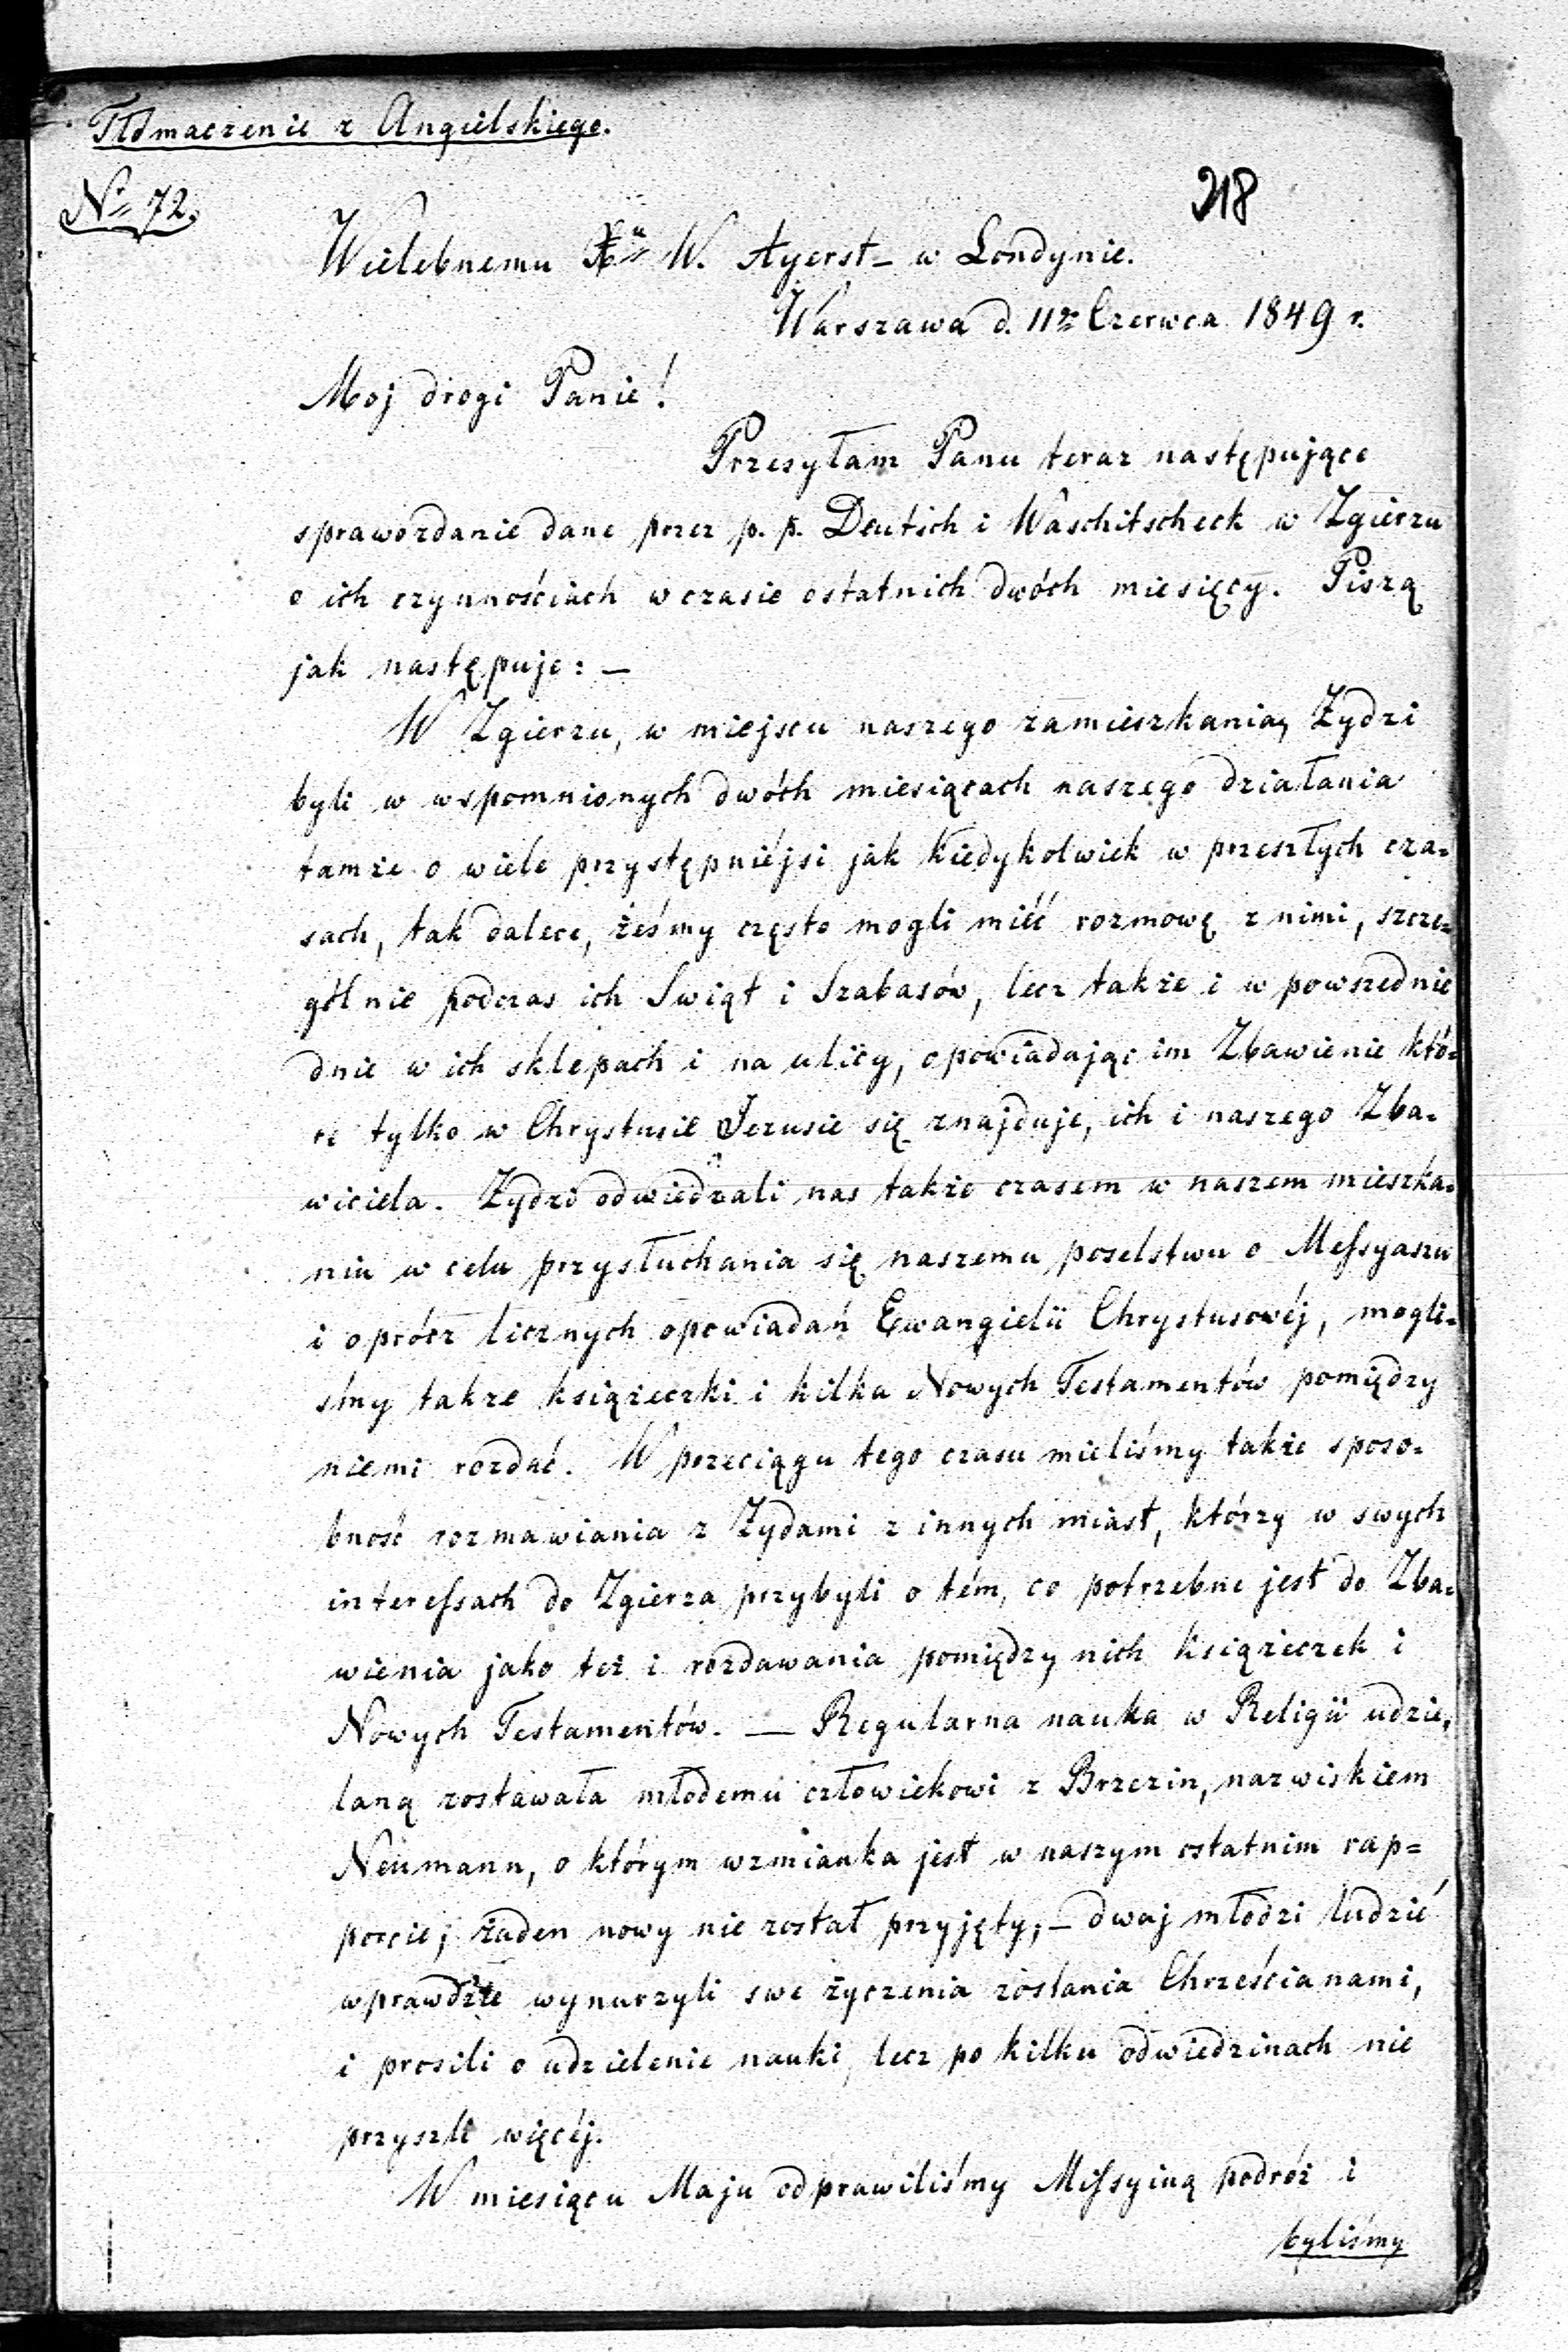 Tłómaczenie z Angielskiego.
N° 72.
218
Wielebnemu Xu W. Ayerst – w Londynie.
Warszawa d. 11go Czerwca 1849 r.
Moj drogi Panie!
Przesyłam Panu teraz następujące
sprawozdanie dane przez p. p. Deutsch i Waschitscheck w Zgierzu
o ich czynnościach w czasie ostatnich dwóch miesięcy. Piszą
jak następuje: –
W Zgierzu, w miejscu naszego zamieszkania, Żydzi
byli w wspomnionych dwóch miesiącach naszego działania
tamże o wiele przystępniéjsi jak kiedykolwiek w przeszłych cza=
sach, tak dalece, żeśmy często mogli mieć rozmowę z nimi, szcze=
gólnie podczas ich Swiąt i Szabasów, lecz także i w powszednie
dnie w ich sklepach i na ulicy, opowiadając im Zbawienie któ=
re tylko w Chrystusie Jezusie się znajduje, ich i naszego Zba=
wiciela. Żydzi odwiedzali nas także czasem w naszem mieszka=
niu w celu przysłuchania się naszemu poselstwu o Messyaszu
i oprócz licznych opowiadań Ewangielii Chrystusowéj, mogli=
śmy także książeczki i kilka Nowych Testamentów pomiędzy
niemi rozdać. W przeciągu tego czasu mieliśmy także sposo=
bność rozmawiania z Żydami z innych miast, którzy w swych
interessach do Zgierza przybyli o tém, co potrzebne jest do Zba=
wienia jako też i rozdawania pomiędzy nich książeczek i
Nowych Testamentów. — Regularna nauka w Religii udzie=
laną zostawała młodemu człowiekowi z Brzezin, nazwiskiem
Neumann, o którym wzmianka jest w naszym ostatnim rap=
porcie; żaden nowy nie został przyjęty; – dwaj młodzi ludzie
wprawdzie wynurzyli swe życzenia zostania Chrześcianami,
i prosili o udzielenie nauki, lecz po kilku odwiedzinach nie
przyszli więcéj.
W miesiącu Maju odprawiliśmy Missyiną podróż i
byliśmy